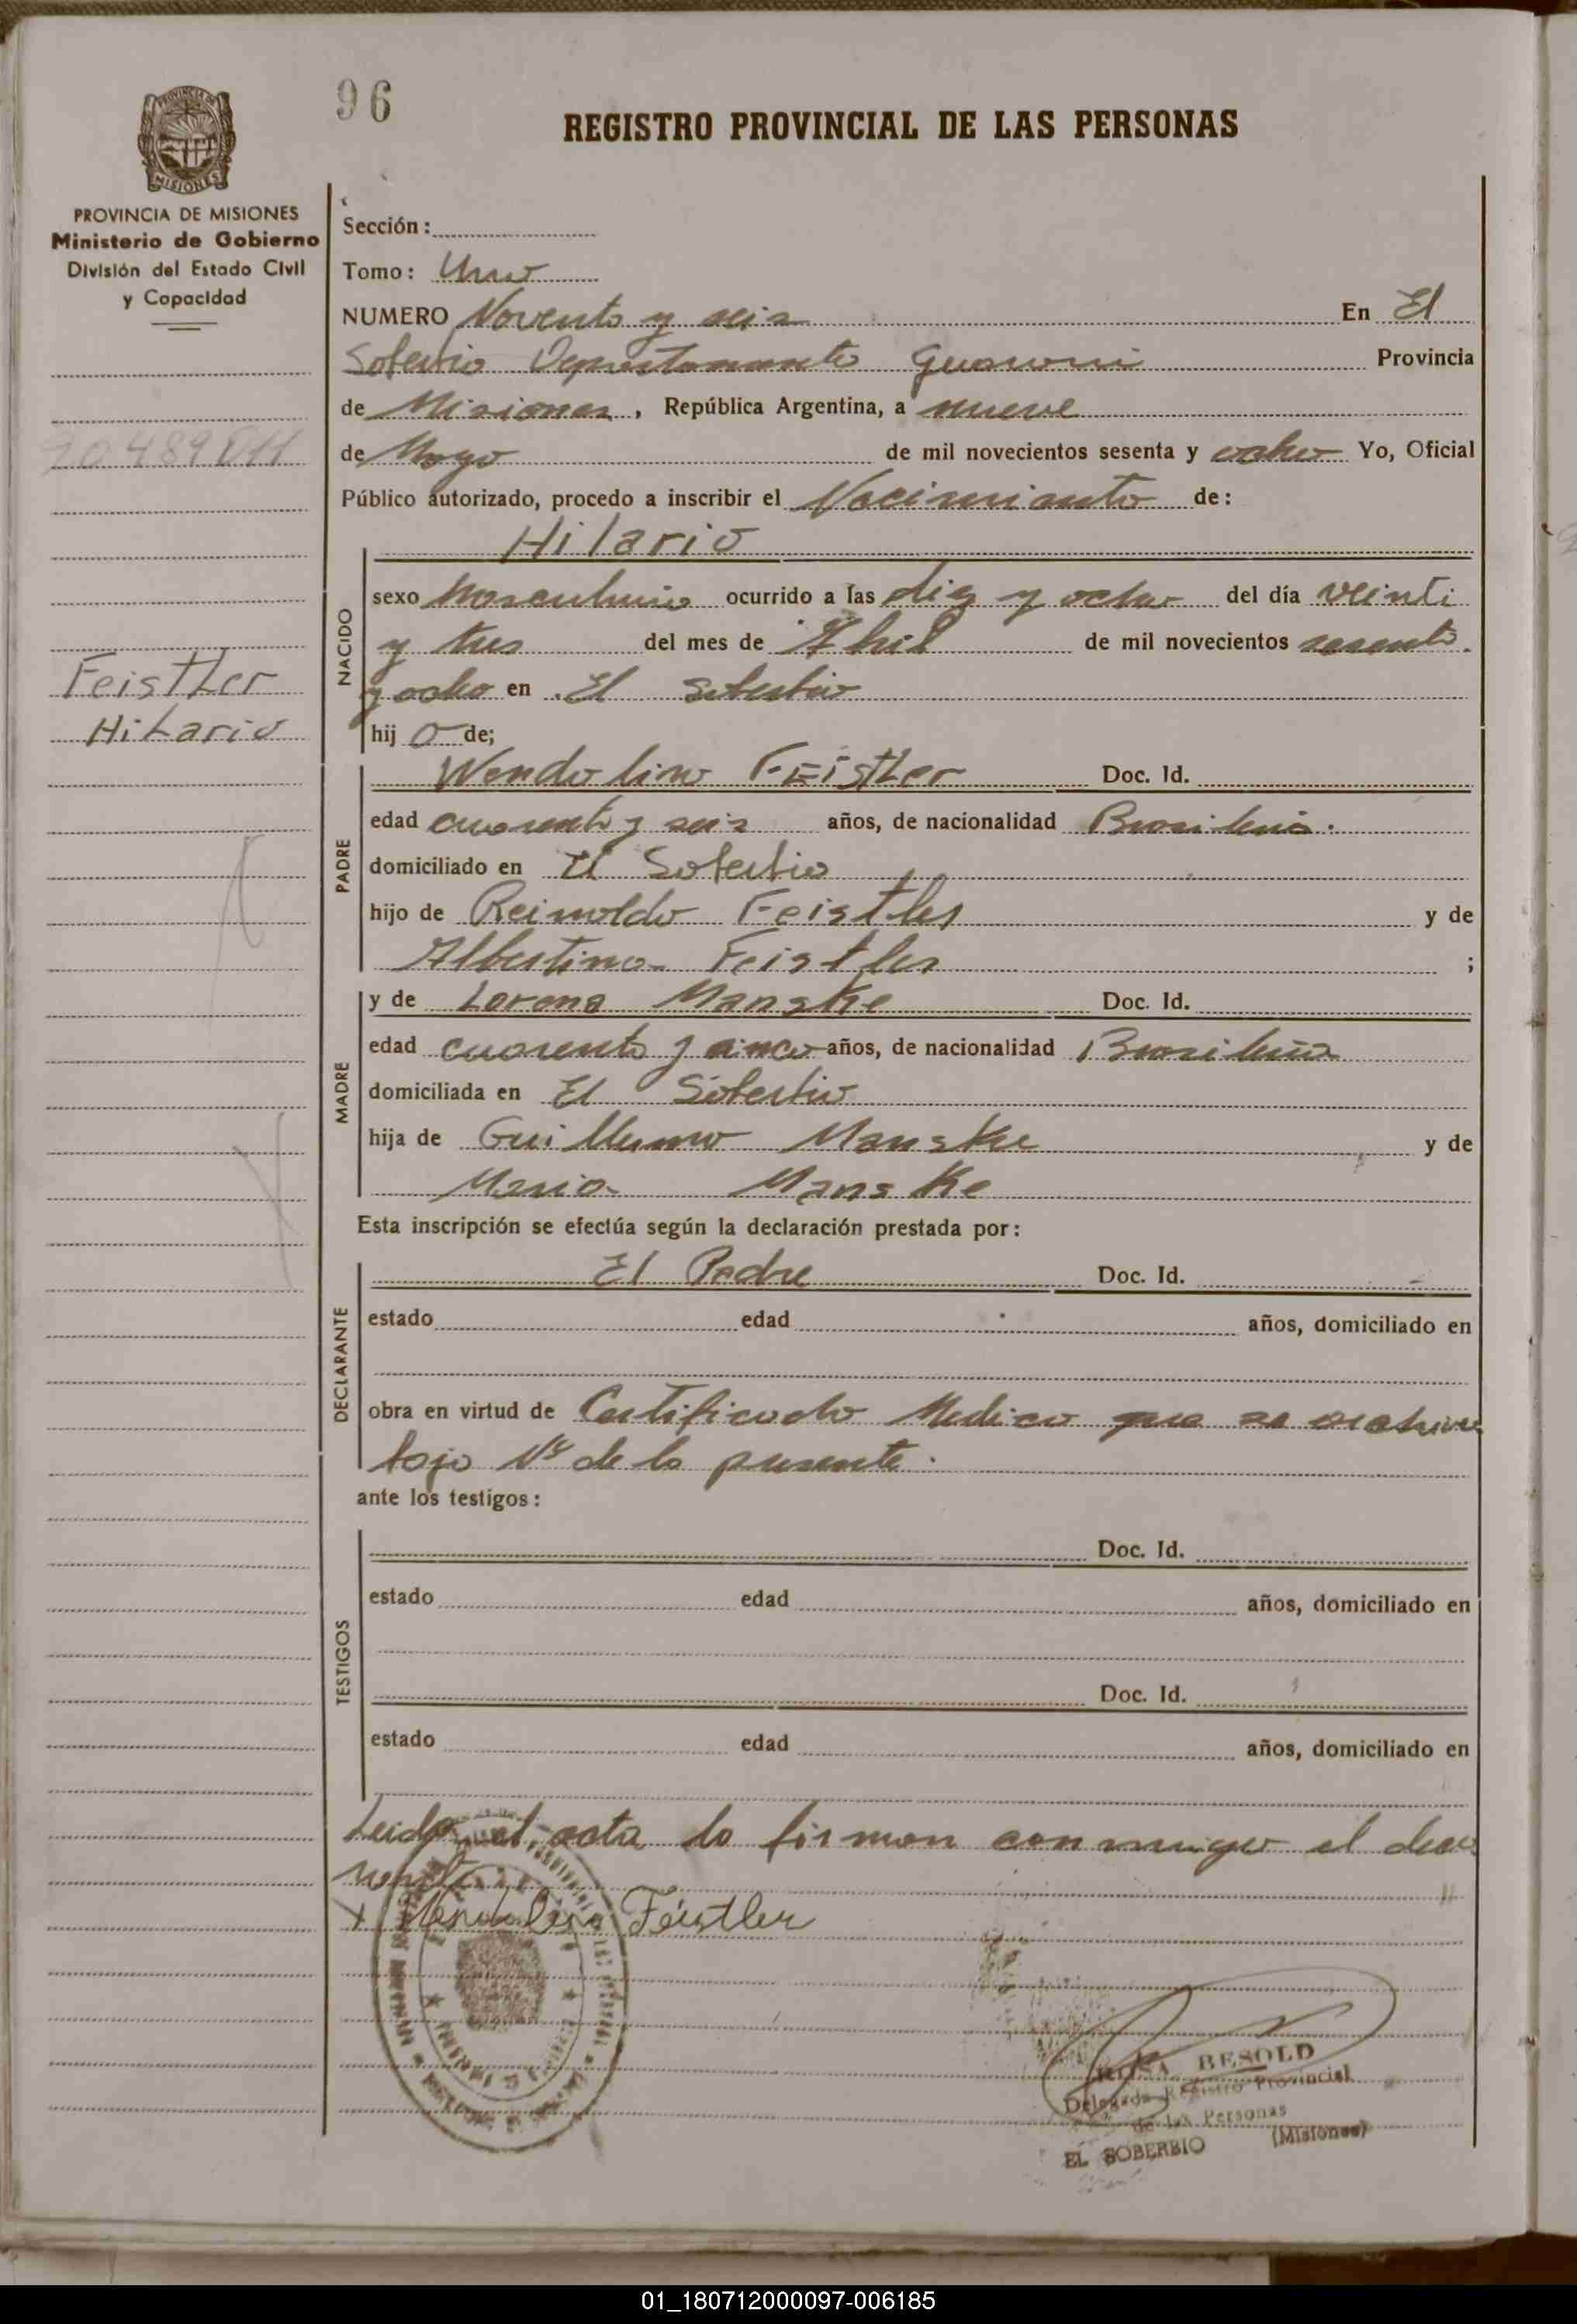 96
REGISTRO PROVINCIAL DE LAS PERSONAS
PROVINCIA DE MISIONES
Ministerio de Gobierno
División del Estado Civil
y Capacidad
Sección:
Tomo: Uno
NUMERO Noventa y seis En El
Soberbio Departamento Guarani Provincia
de Misiones, República Argentina, a nueve
de Mayo de mil novecientos sesenta y ocho Yo, Oficial
Público autorizado, procedo a inscribir el Nacimiento de:
Hilario
NACIDO
sexo Masculino ocurrido a las diez y ocho del día veinti
y tres del mes de Abril de mil novecientos sesenta
y ocho en El Soberbio
hij o de;
Feistler
Hilario
PADRE
Wendolino Feistler Doc. Id.
edad cuarenta y seis años, de nacionalidad Brasileña.
domiciliado en El Soberbio
hijo de Reinoldo Feistler y de
Albertina Feistler ;
MADRE
y de Lorena Manske Doc. Id.
edad cuarenta y cinco años, de nacionalidad Brasileña
domiciliada en El Soberbio
hija de Guillermo Manske y de
Maria Manske
Esta inscripción se efectúa según la declaración prestada por:
DECLARANTE
El Padre Doc. Id.
estado edad años, domiciliado en
obra en virtud de Certificado Medico que se archiva
bajo Nº de la presente.
ante los testigos:
TESTIGOS
Doc. Id.
estado edad años, domiciliado en
Doc. Id.
estado edad años, domiciliado en
Leida el acta la firman conmigo el decla
rante
Wendolino Feistler
BESOLD
Delegada Registro Provincial
de las Personas
EL SOBERBIO (Misiones)
01_180712000097-006185